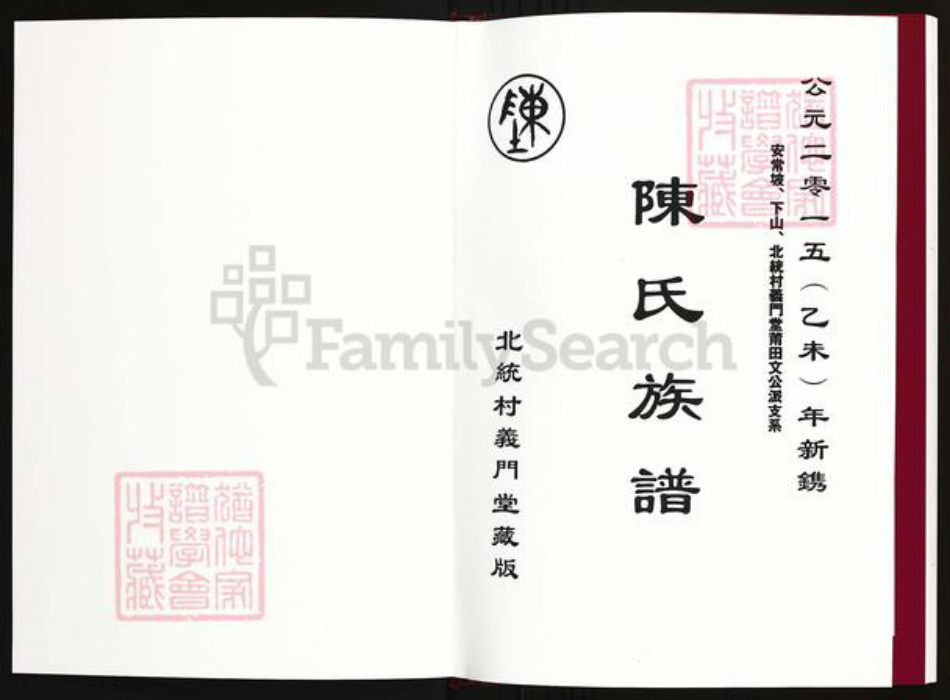 公元二零一五（乙未）年新鐫
安常坡、下山、北統村義門堂莆田文公派支系
陳氏族譜
北統村義門堂藏版
陳
FamilySearch
猶他家
譜學會
收藏
猶他家
譜學會
收藏